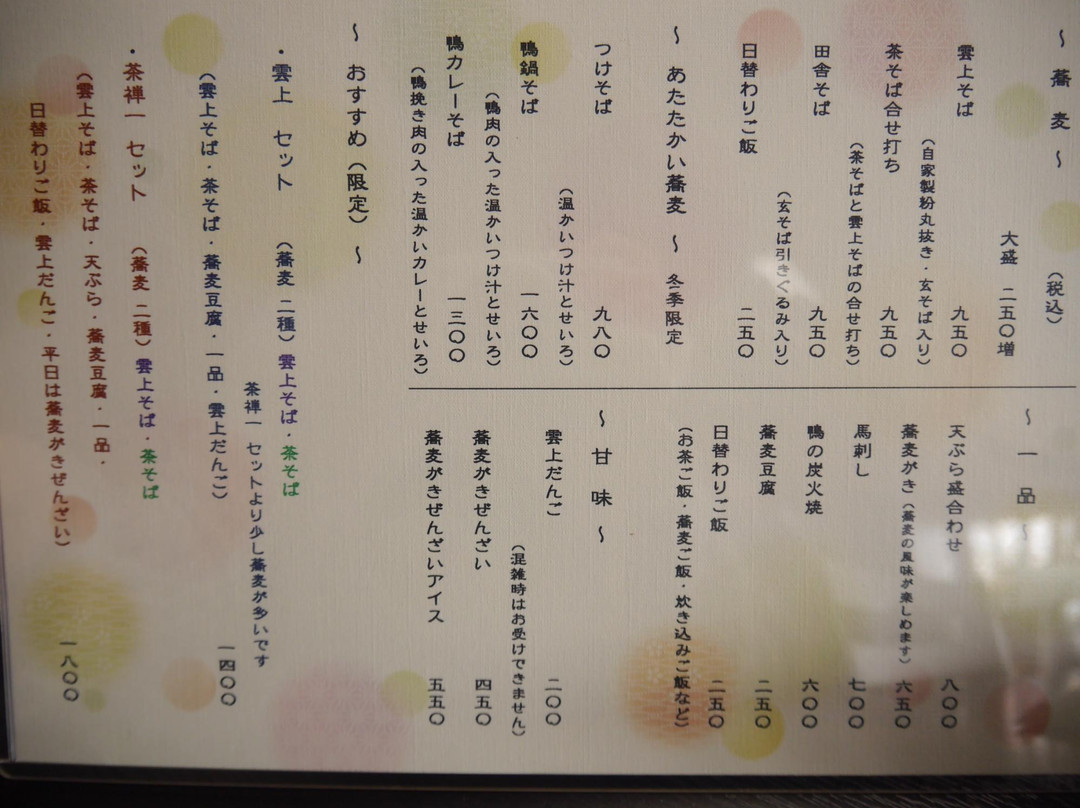 ～ 蕎 麦 ～
（税込）
大盛 二五〇増
雲上そば 九五〇
（自家製粉丸抜き・玄そば入り）
茶そば合せ打ち 九五〇
（茶そばと雲上そばの合せ打ち）
田舎そば 九五〇
（玄そば引きぐるみ入り）
日替わりご飯 二五〇
～ あたたかい蕎麦 ～ 冬季限定
つけそば 九八〇
（温かいつけ汁とせいろ）
鴨鍋そば 一六〇〇
（鴨肉の入った温かいつけ汁とせいろ）
鴨カレーそば 一三〇〇
（鴨挽き肉の入った温かいカレーとせいろ）
～ 一 品 ～
天ぷら盛合わせ 八〇〇
蕎麦がき（蕎麦の風味が楽しめます） 六五〇
馬刺し 七〇〇
鴨の炭火焼 六〇〇
蕎麦豆腐 二五〇
日替わりご飯 二五〇
（お茶ご飯・蕎麦ご飯・炊き込みご飯など）
～ 甘 味 ～
雲上だんご 二〇〇
（混雑時はお受けできません）
蕎麦がきぜんざい 四五〇
蕎麦がきぜんざいアイス 五五〇
～ おすすめ（限定） ～
・雲上 セット （蕎麦 二種）雲上そば・茶そば
茶禅一 セットより少し蕎麦が多いです
（雲上そば・茶そば・蕎麦豆腐・一品・雲上だんご） 一四〇〇
・茶禅一 セット （蕎麦 二種）雲上そば・茶そば
（雲上そば・茶そば・天ぷら・蕎麦豆腐・一品・
日替わりご飯・雲上だんご・平日は蕎麦がきぜんざい） 一八〇〇